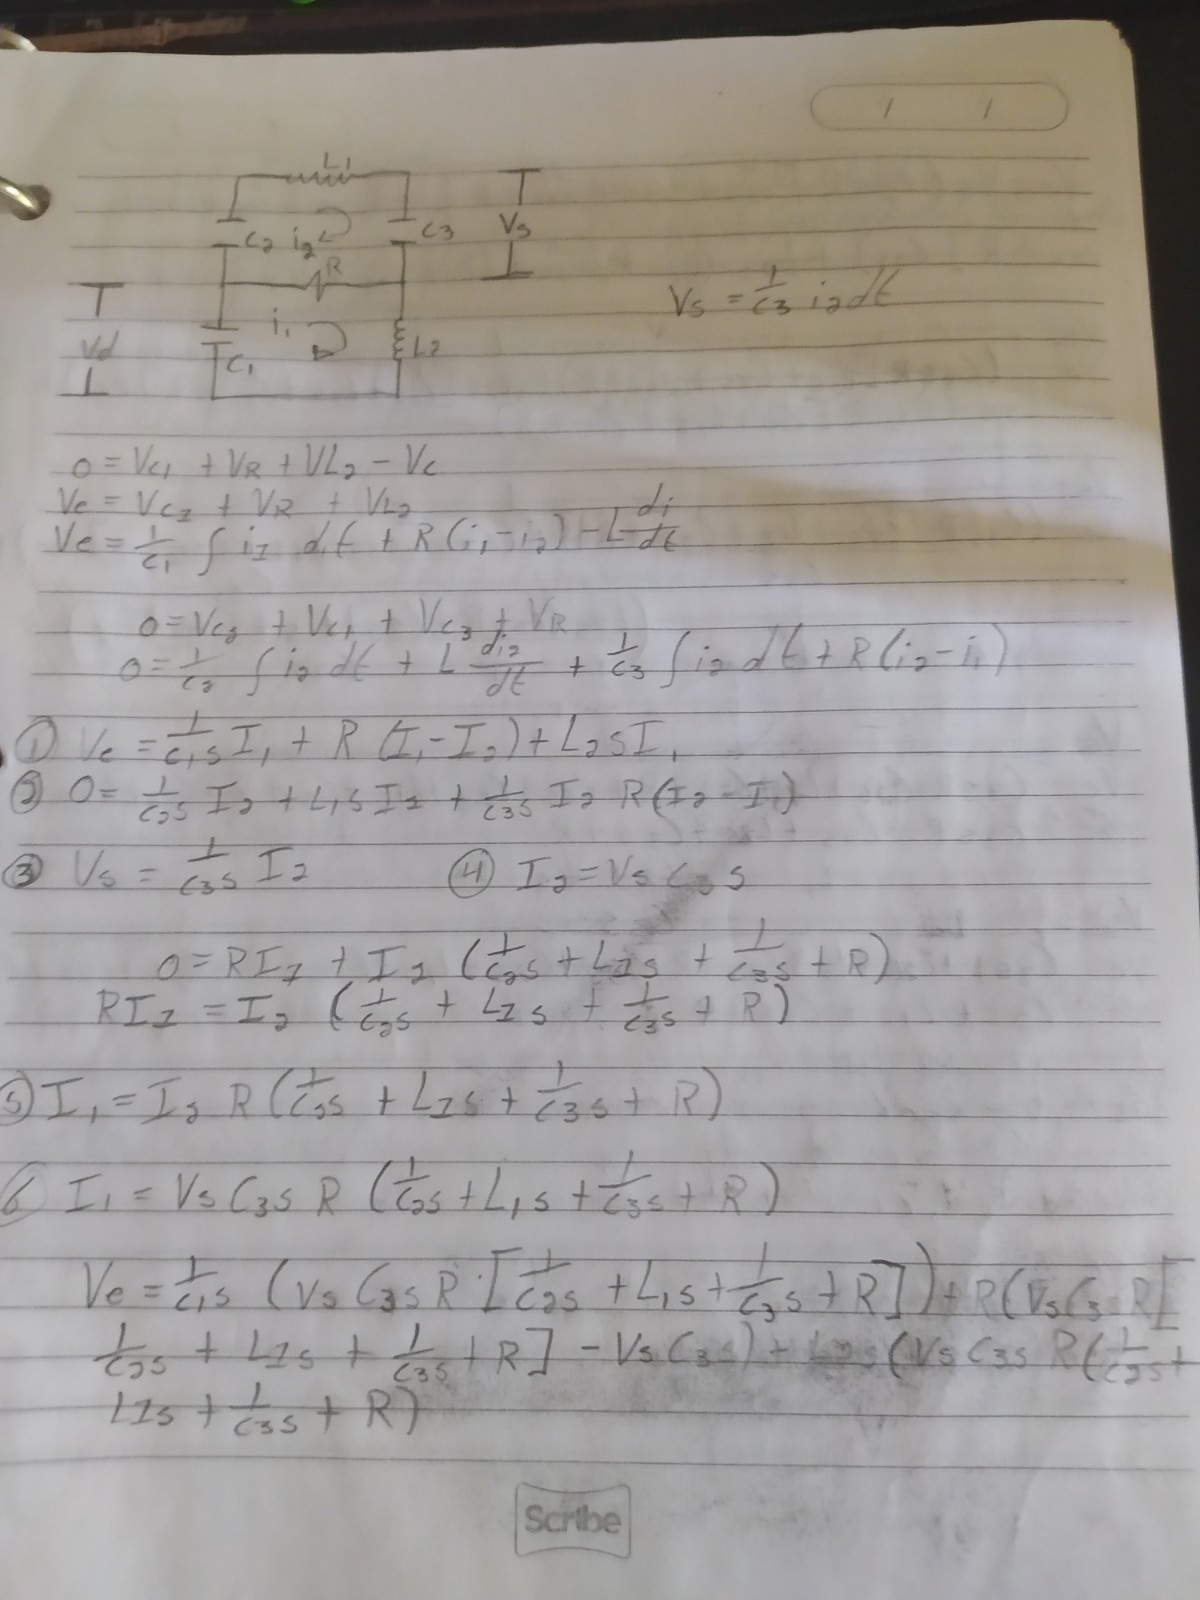 / /
L1
C2 i2 C3 Vs
R
Vs = 1/C3 i2 dt
Vd C1 i1 L2
0 = Vc1 + VR + VL2 - Vc
Ve = Vc1 + VR + VL2
Ve = 1/C1 ∫ i1 dt + R (i1 - i2) - L di/dt
0 = Vc2 + Vc1 + Vc3 + VR
0 = 1/C2 ∫ i2 dt + L di2/dt + 1/C3 ∫ i2 dt + R (i2 - i1)
① Ve = 1/C1s I1 + R (I1 - I2) + L2sI1
② 0 = 1/C2s I2 + L1s I2 + 1/C3s I2 R(I2 - I1)
③ Vs = 1/C3s I2 ④ I2 = Vs C3 s
0 = RI1 + I2 (1/C2s + L1s + 1/C3s + R)
RI1 = I2 (1/C2s + L1s + 1/C3s + R)
⑤ I1 = I2 R (1/C2s + L1s + 1/C3s + R)
⑥ I1 = Vs C3s R (1/C2s + L1s + 1/C3s + R)
Ve = 1/C1s (Vs C3s R · [1/C2s + L1s + 1/C3s + R]) + R (Vs C3s R [
1/C2s + L1s + 1/C3s + R] - Vs C3s) + L2s (Vs C3s R (1/C2s +
L1s + 1/C3s + R)
Scribe